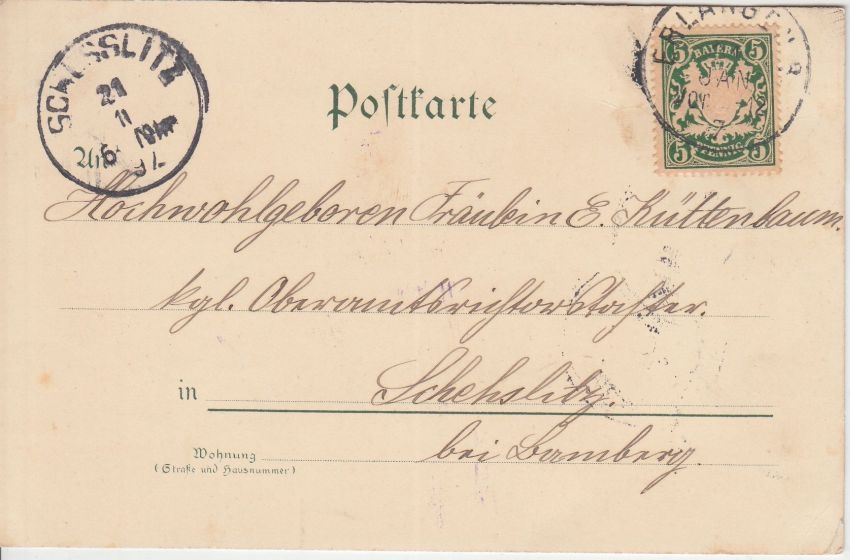 SCHESSLITZ
21
11
6 Nm
97
ERLANGEN
JAN
5 BAYERN 5
5 PFENNIG 5
Postkarte
An
Hochwohlgeboren Fräulein E. Küttenbaum.
kgl. Oberamtsrichterstochter.
in Schehslitz
bei Bamberg.
Wohnung
(Straße und Hausnummer)